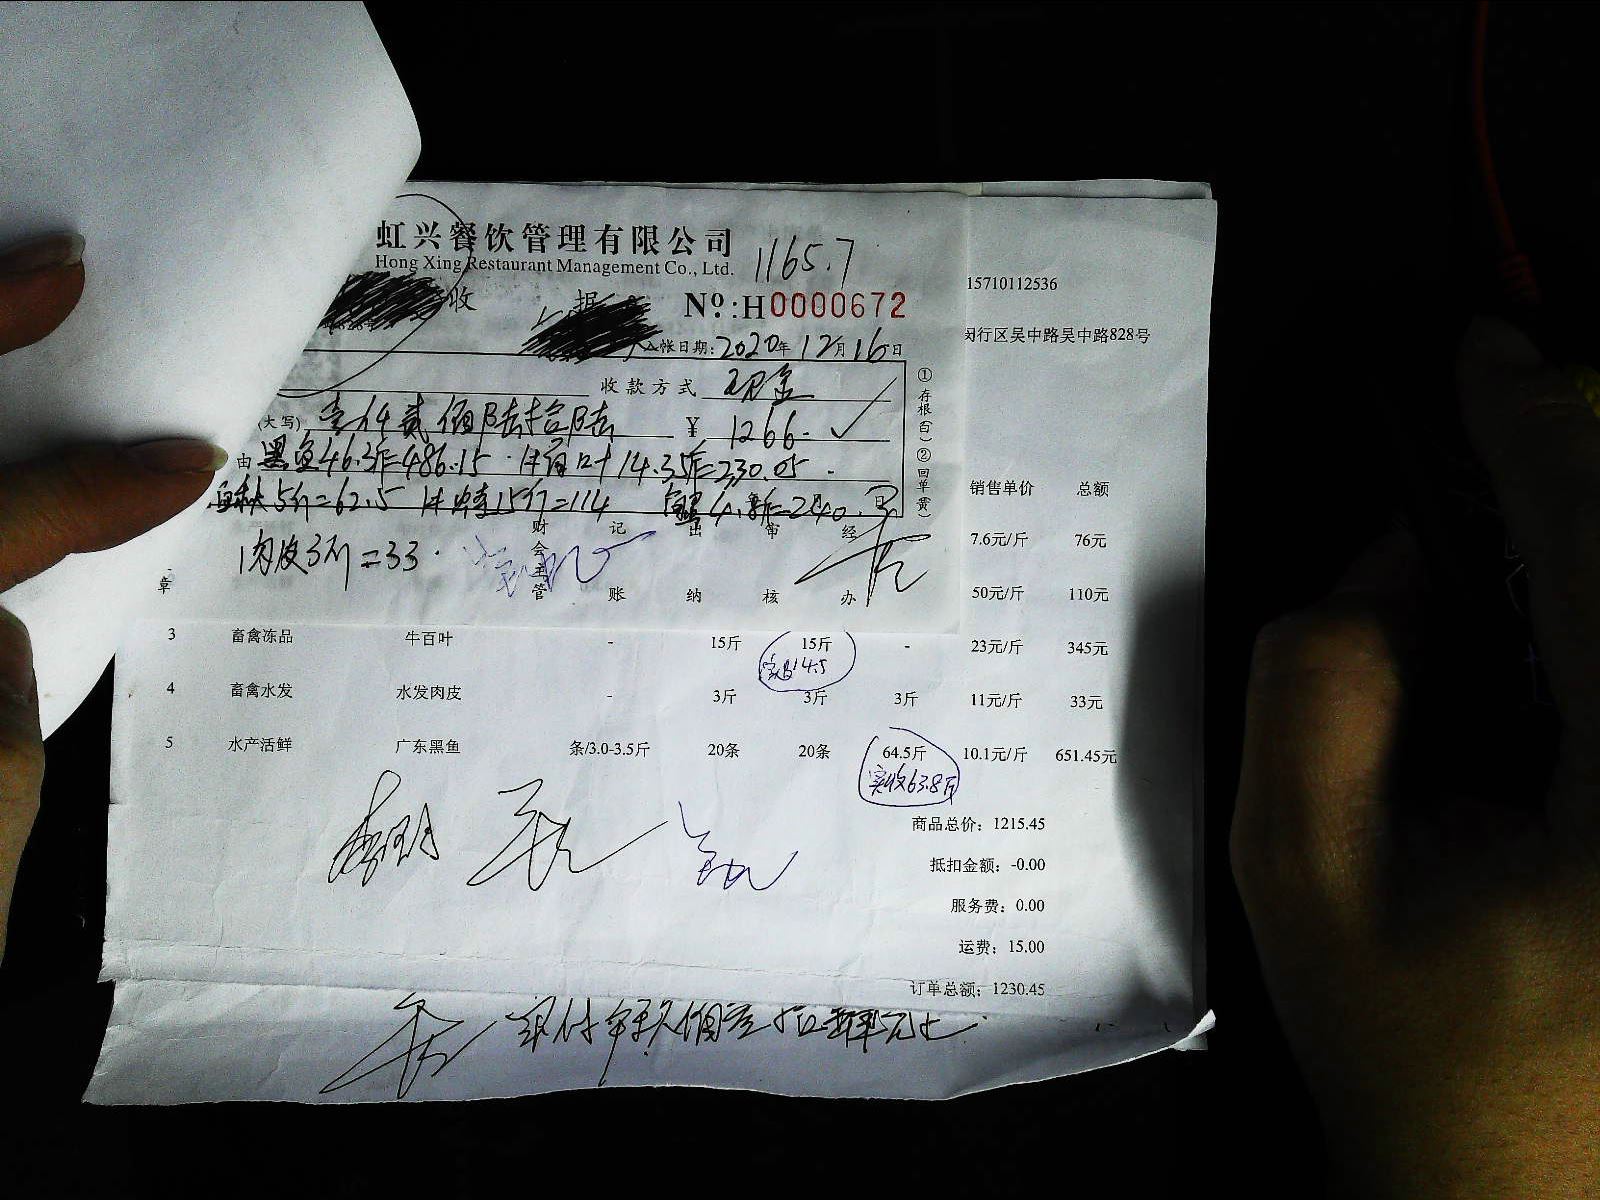 虹兴餐饮管理有限公司
Hong Xing Restaurant Management Co., Ltd.
1165.7
收 据 No.:H0000672
入帐日期:2020年12月16日
收款方式 现金
(大写) 壹仟贰佰陆拾陆 ¥ 1266.-
由 黑鱼46.3斤=486.15
14.35斤=230.05
5斤=62.5 15斤=114 =240.
肉皮3斤=33.
①存根(白) ②回单(黄)
财会主管 记账 出纳 审核 经办
15710112536
闵行区吴中路吴中路828号
销售单价 总额
7.6元/斤 76元
章 50元/斤 110元
3 畜禽冻品 牛百叶 - 15斤 15斤 - 23元/斤 345元
实收14.5
4 畜禽水发 水发肉皮 - 3斤 3斤 3斤 11元/斤 33元
5 水产活鲜 广东黑鱼 条/3.0-3.5斤 20条 20条 64.5斤 10.1元/斤 651.45元
实收63.8斤
商品总价: 1215.45
抵扣金额: -0.00
服务费: 0.00
运费: 15.00
订单总额: 1230.45